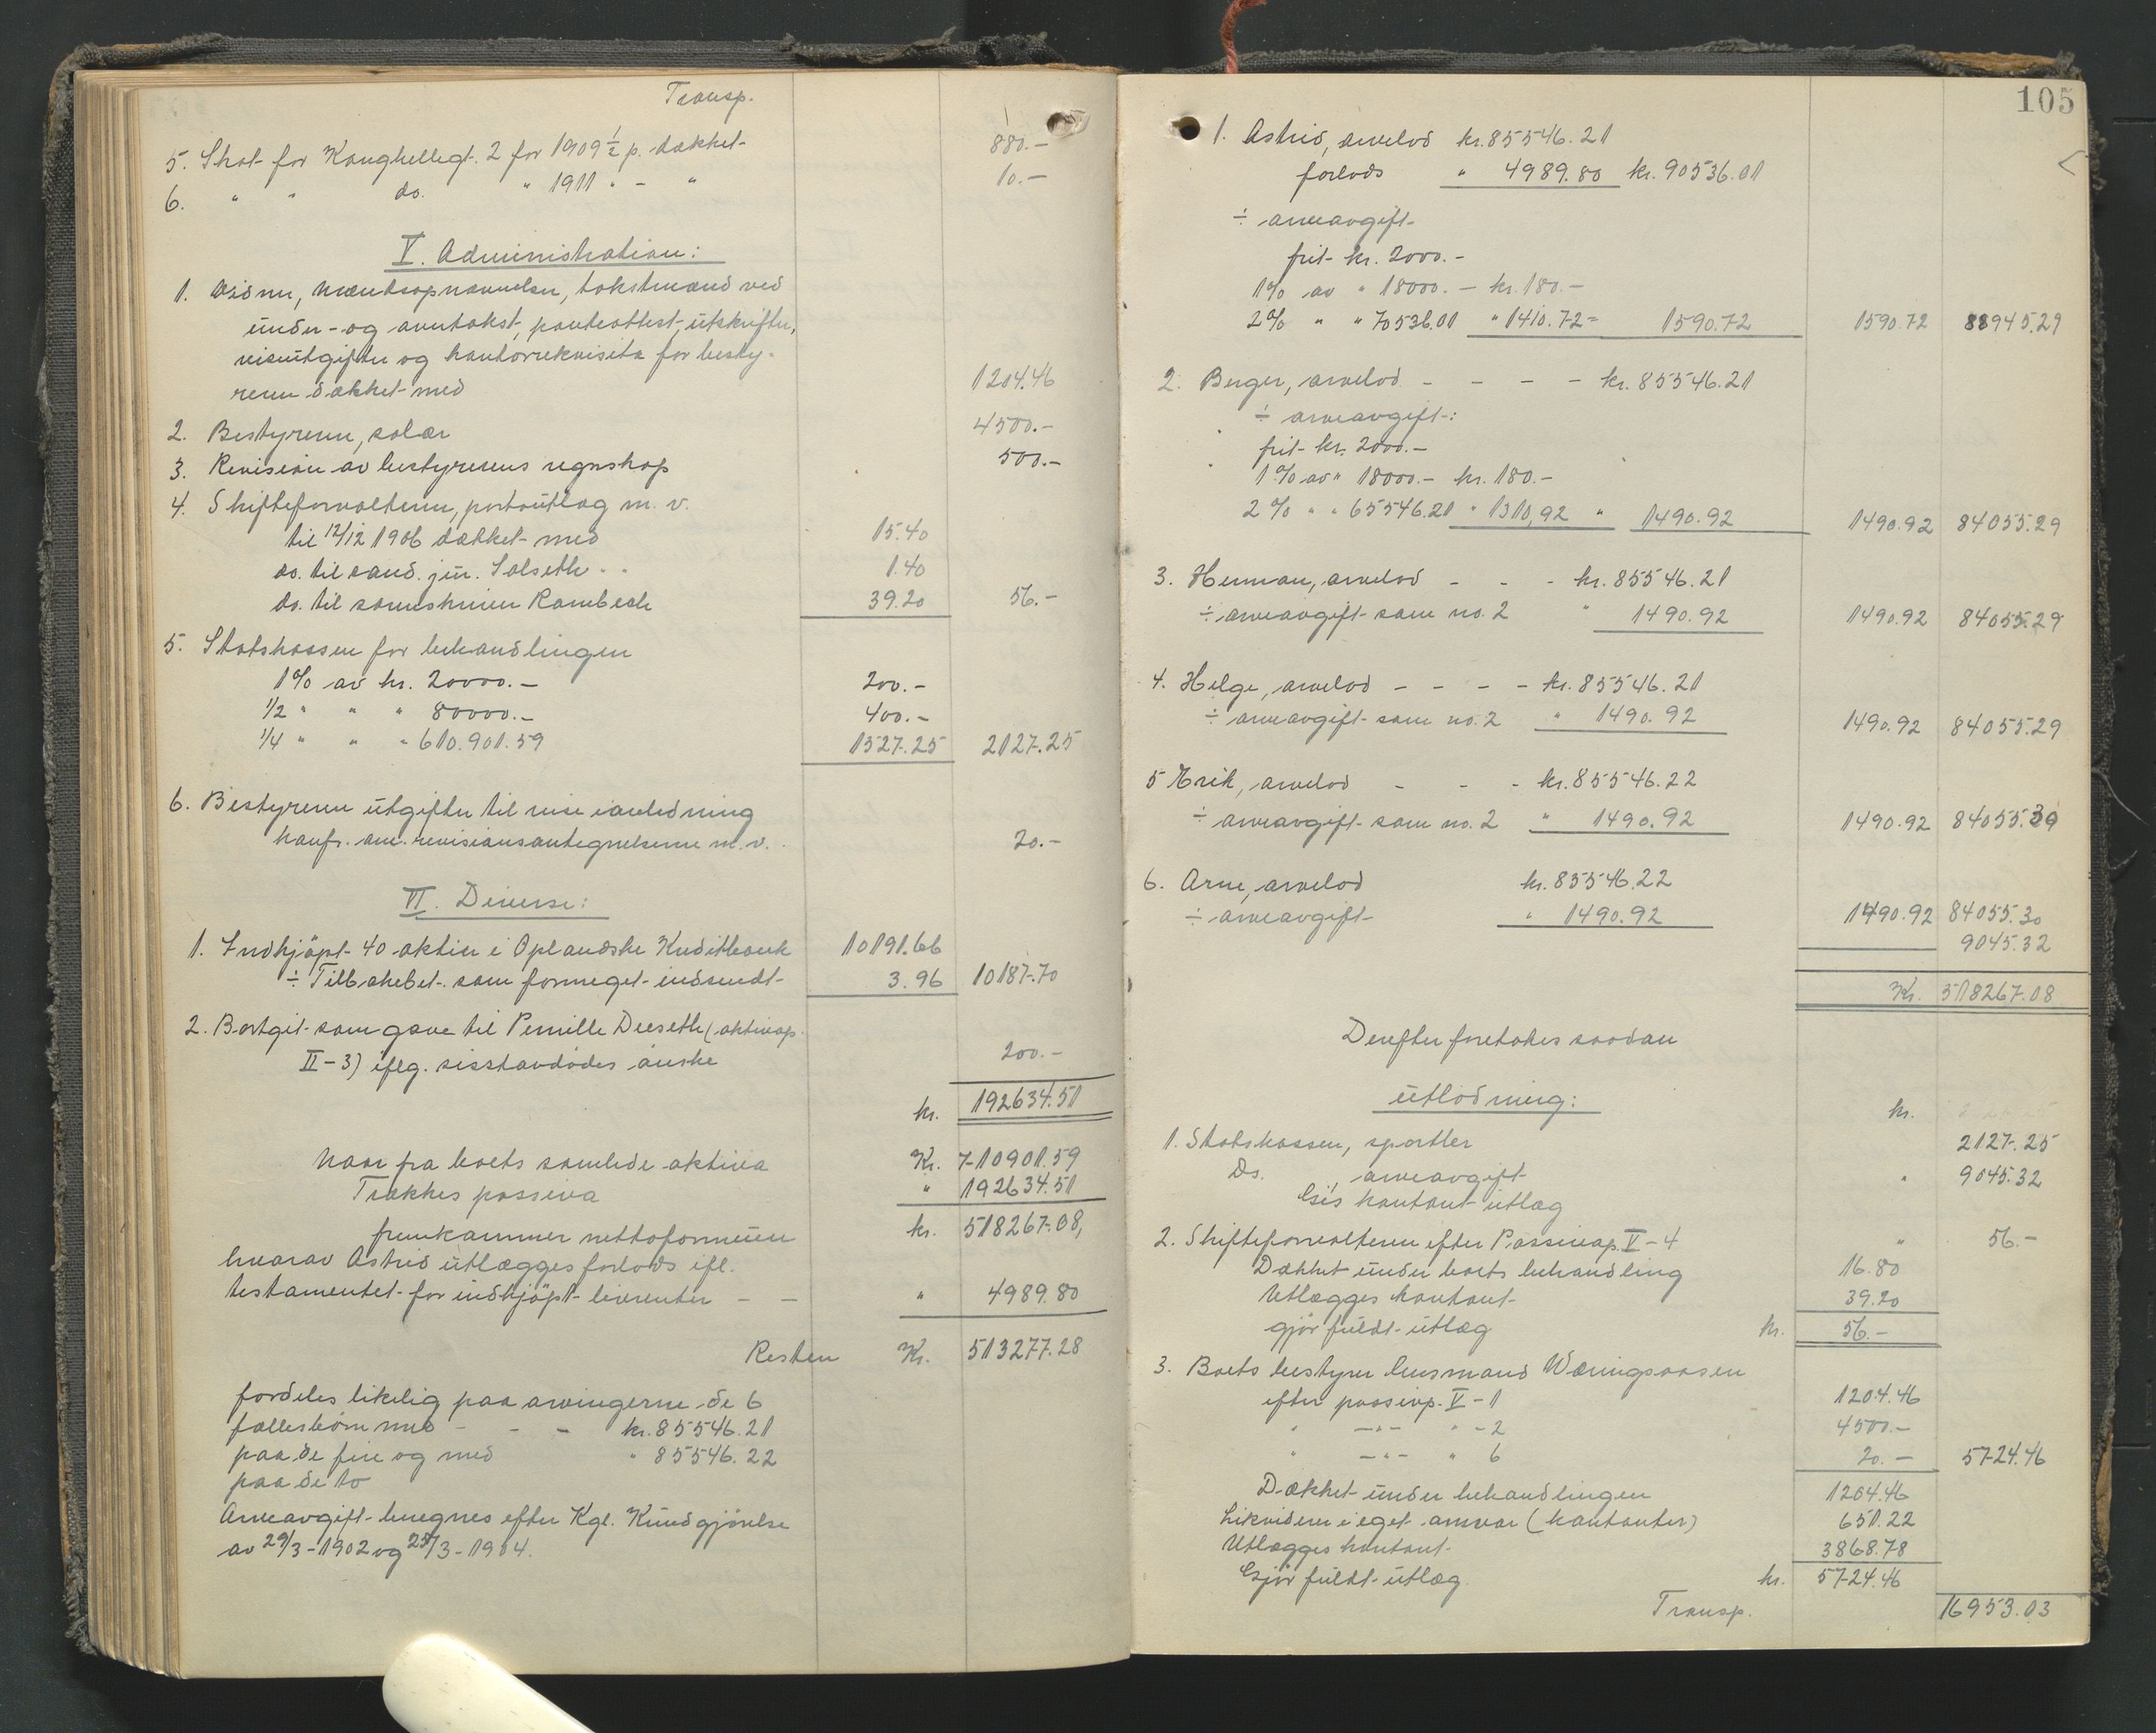 Transp.
5. Skat for Konghellegt. 2 for 1909 1/2 p. dækket 880.-
6. " " do. " 1911 " - " 10.-
V. Administration:
1. Widner, mændsopnævnelser, takstmænd ved
under- og overtakst, panteattest, utskrifter,
reiseutgifter og kontorrekvisita for besty-
reren dækket med 1204.46
2. Bestyreren, salær 4500.-
3. Revision av bestyrerens regnskap 500.-
4. Skifteforvalteren, portoutlæg m. v.
til 12/12 1906 dækket med 15.40
do. til cand. jur. Solseth " " 1.40
do. til sorenskriver Rambech 39.20 56.-
5. Statskassen for behandlingen
1% av kr. 20000.- 200.-
1/2 " " " 80000.- 400.-
1/4 " " " 610.901.59 1527.25 2127.25
6. Bestyreren utgifter til reise i anledning
konfr. an. revisionsantegnelserne m. v. 20.-
VI. Diverse:
1. Indkjøpt 40 aktier i Oplandske Kreditbank 10191.66
÷ Tilbakebet. som formeget indsendt 3.96 10187.70
2. Bortgit som gave til Pernille Deeseth (aktivap.
II-3) iflg. sisstavdødes ønske 200.-
kr. 192634.51
Naar fra boets samlede aktiva Kr. 710901.59
Trækkes passiva " 192634.51
fremkommer nettoformuen kr. 518267.08,
hvorav Astrid utlægges forlods ifl.
testamentet for indkjøpt livrenter - - " 4989.80
Resten Kr. 513277.28
fordeles likelig paa arvingerne de 6
fællesbørn med - - - kr. 85546.21
paa de fire og med " 85546.22
paa de to
Arveavgift beregnes efter Kgl. Kundgjørelse
av 29/3-1902 og 23/3-1904.
105
1. Astrid, arvelod kr. 85546.21
forlods " 4989.80 kr. 90536.01
÷ arveavgift
frit kr. 2000.-
1% av " 18000.- kr. 180.-
2% " " 70536.01 " 1410.72 = 1590.72 1590.72 88945.29
2. Birger, arvelod - - - - kr. 85546.21
÷ arveavgift:
frit kr. 2000.-
1% av " 18000.- kr. 180.-
2% " " 65546.21 " 1310,92 " 1490.92 1490.92 84055.29
3. Herman, arvelod - - - kr. 85546.21
÷ arveavgift som no. 2 " 1490.92 1490.92 84055.29
4. Helge, arvelod - - - - kr. 85546.21
÷ arveavgift som no. 2 " 1490.92 1490.92 84055.29
5 Erik, arvelod - - - kr. 85546.22
÷ arveavgift som no. 2 " 1490.92 1490.92 84055.30
6. Arne, arvelod kr. 85546.22
÷ arveavgift " 1490.92 1490.92 84055.30
9045.32
Kr. 518267.08
Derefter foretokes saadan
utlodning:
kr.
1. Statskassen, sportler 2127.25
Ds. arveavgift " 9045.32
Gis kontant utlæg
2. Skifteforvalteren efter Passivap. V-4 " 56.-
Dækket under boets behandling 16.80
Utlægges kontant 39.20
gjør fuldt utlæg kr. 56.-
3. Boets bestyrer lensmand Wæringsaasen
efter passivp. V-1 1204.46
" -"- " -2 4500.-
" -"- " 6 20.- 5724.46
Dækket under behandlingen 1204.46
Likviderer i eget ansvar (kontanter) 651.22
Utlægges kontant 3868.78
Gjør fuldt utlæg kr. 5724.46
Transp. 16953.03